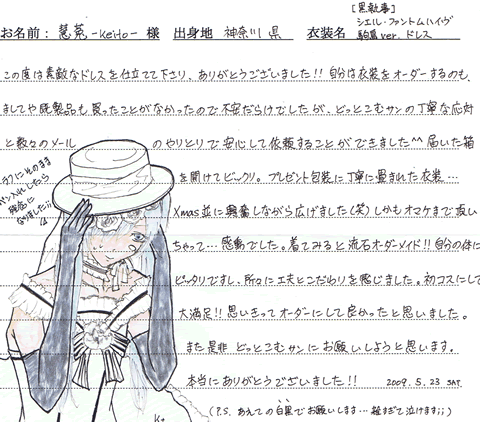 [黒執事]
お名前：慧菟 -Keito- 様　出身地　神奈川県　衣装名　シエル・ファントムハイヴ
駒鳥ver. ドレス
この度は素敵なドレスを仕立てて下さり、ありがとうございました!! 自分は衣装をオーダーするのも
ましてや既製品も買ったことがなかったので不安だらけでしたが、どっとこむサンの丁寧な応対
と数々のメールのやりとりで安心して依頼することができました^^ 届いた箱
を開けてビックリ。プレゼント包装に丁寧に畳まれた衣装…
Xmas並に興奮しながら広げました(笑) しかもオマケまで頂い
ちゃって…感動でした。着てみると流石オーダーメイド!! 自分の体に
ピッタリですし、所々に工夫とこだわりを感じました。初コスにして
大満足!! 思いきってオーダーにして良かったと思いました。
また是非 どっとこむサンにお願いしようと思います。
本当にありがとうございました!!　2009.5.23 SAT.
(P.S. あえての白黒でお願いします…雑すぎて泣けます;;)
にそのまま
ペン入れしたら
残念に
なりました;;